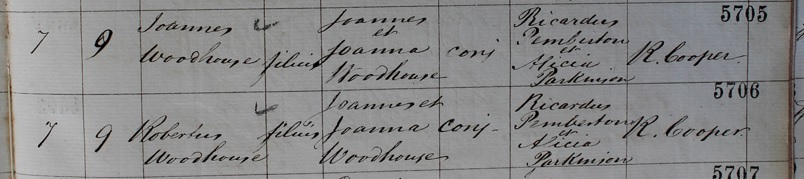 5705
7 9 Joannes Woodhouse filius Joannes et Joanna Woodhouse conj Ricardus Pemberton et Alicia Parkinson R. Cooper
5706
7 9 Robertus Woodhouse filius Joannes et Joanna Woodhouse conj- Ricardus Pemberton et Alicia Parkinson R. Cooper
5707